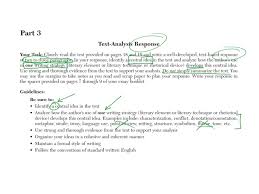 Part 3
Text-Analysis Response
Your Task: Closely read the text provided on pages 18 and 19 and write a well-developed, text-based response
of two to three paragraphs. In your response, identify a central idea in the text and analyze how the author's use of
one writing strategy (literary element or literary technique or rhetorical device) develops this central idea.
Use strong and thorough evidence from the text to support your analysis. Do not simply summarize the text. You
may use the margins to take notes as you read and scrap paper to plan your response. Write your response in
Guidelines:
Be sure to:
• Identify a central idea in the text
• Analyze how the author's use of one writing strategy (literary element or literary technique or rhetorical
device) develops this central idea. Examples include: characterization, conflict, denotation/connotation,
metaphor, simile, irony, language use, point-of-view, setting, structure, symbolism, theme, tone, etc.
• Use strong and thorough evidence from the text to support your analysis
• Organize your ideas in a cohesive and coherent manner
• Maintain a formal style of writing
• Follow the conventions of standard written English